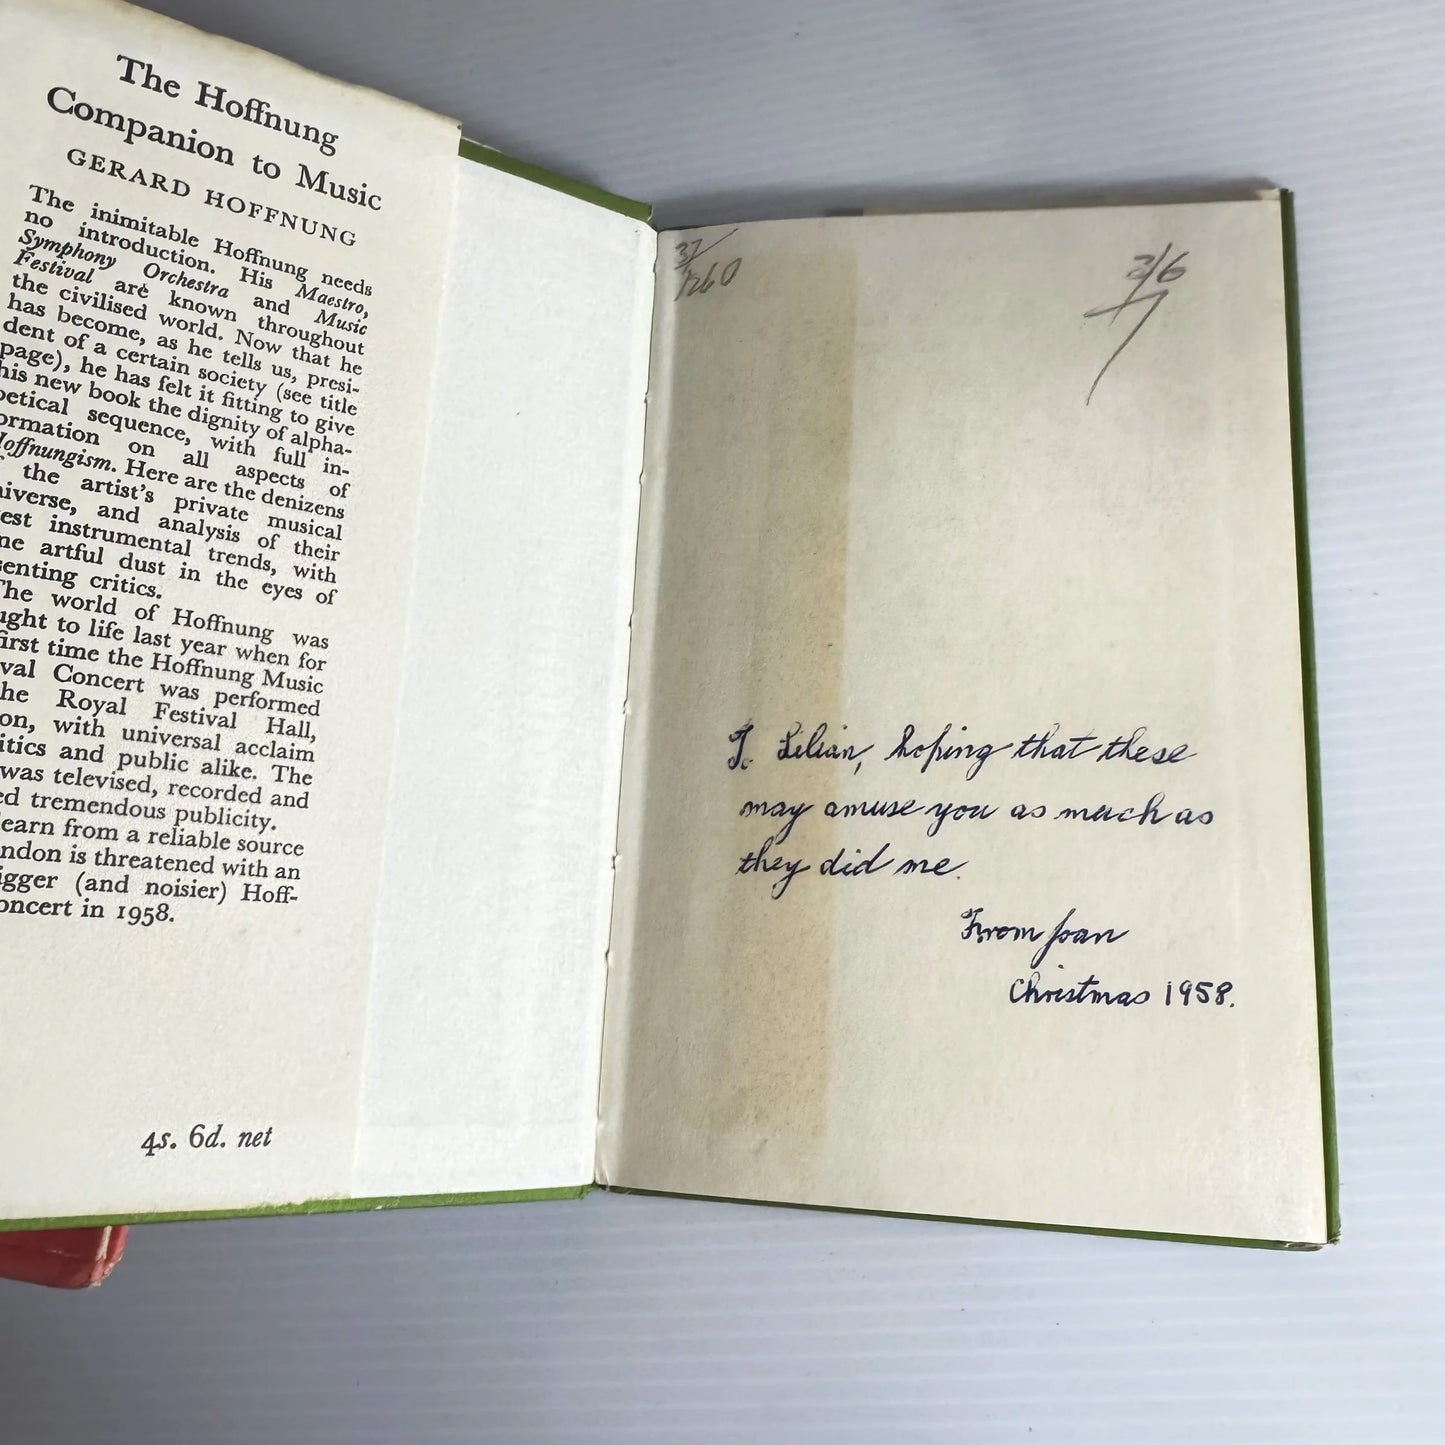 The Hoffnung
Companion to Music
GERARD HOFFNUNG
The inimitable Hoffnung needs
no introduction. His Maestro,
Symphony Orchestra and Music
Festival are known throughout
the civilised world. Now that he
has become, as he tells us, presi-
dent of a certain society (see title
page), he has felt it fitting to give
his new book the dignity of alpha-
betical sequence, with full in-
formation on all aspects of
Hoffnungism. Here are the denizens
the artist's private musical
universe, and analysis of their
instrumental trends, with
artful dust in the eyes of
critics.
The world of Hoffnung was
to life last year when for
first time the Hoffnung Music
Concert was performed
the Royal Festival Hall,
with universal acclaim
critics and public alike. The
was televised, recorded and
tremendous publicity.
learn from a reliable source
London is threatened with an
bigger (and noisier) Hoff-
concert in 1958.
4s. 6d. net
37/
2/6
To Lilian, hoping that these
may amuse you as much as
they did me.
From Joan
Christmas 1958.